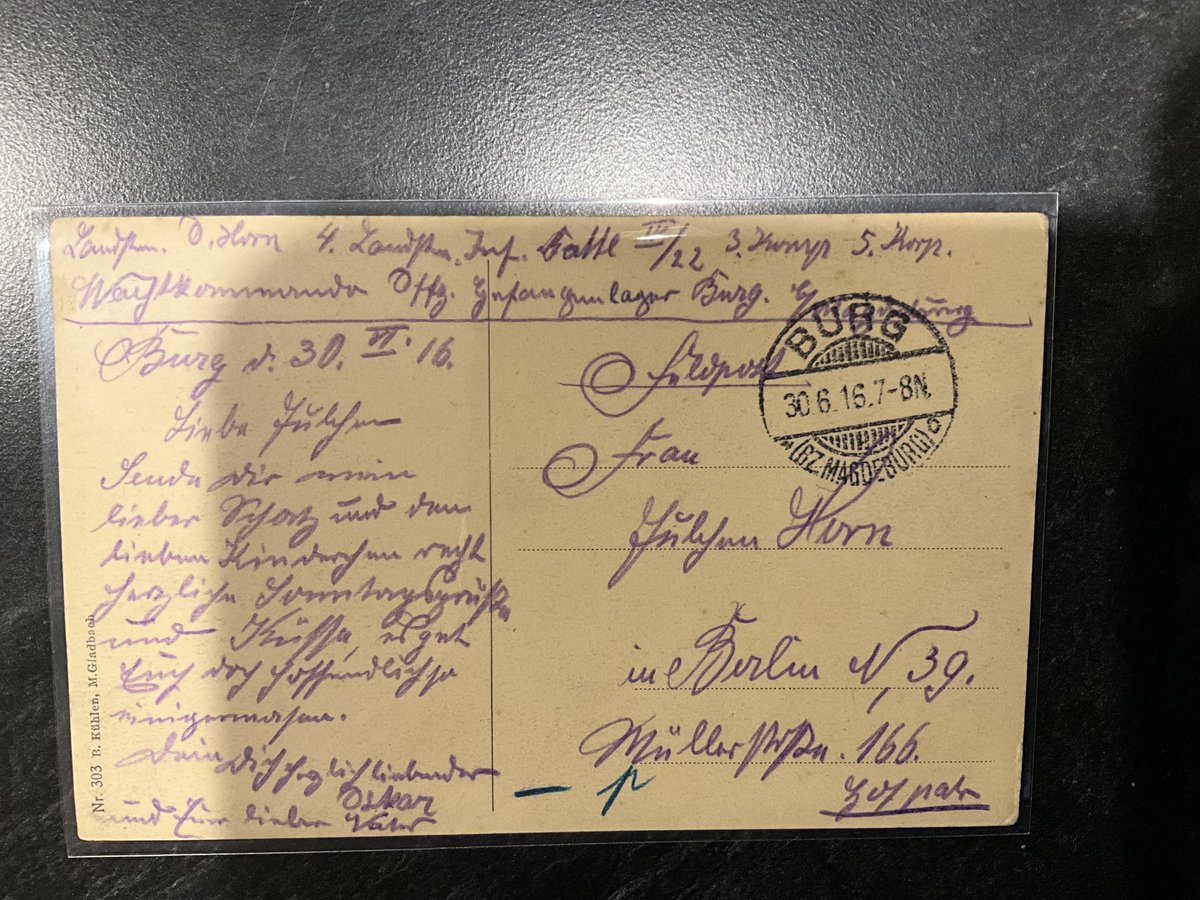 Landstm. O. Horn 4. Landstm. Inf. Batl III/22 3. Komp 5. Korp.
Wachtkommando Offz. Gefangenlager Burg.
Burg d. 30. VI. 16.
Liebe Julchen
Sende Dir mein
lieber Schatz und den
lieben Kinderchen recht
herzliche Sonntagsgrüße
und Küsse, es get
Euch doch hoffendlich so
einigermasen.
Dein Dich herzlich liebender
Oskar
und Euer lieber Vater
Feldpost
BURG
30.6.16.7-8N.
*(BZ. MAGDEBURG) c
Frau
Julchen Horn
in Berlin N, 39.
Müllerstrße. 166.
Hof part.
Nr. 303 B. Kühlen, M.Gladbach